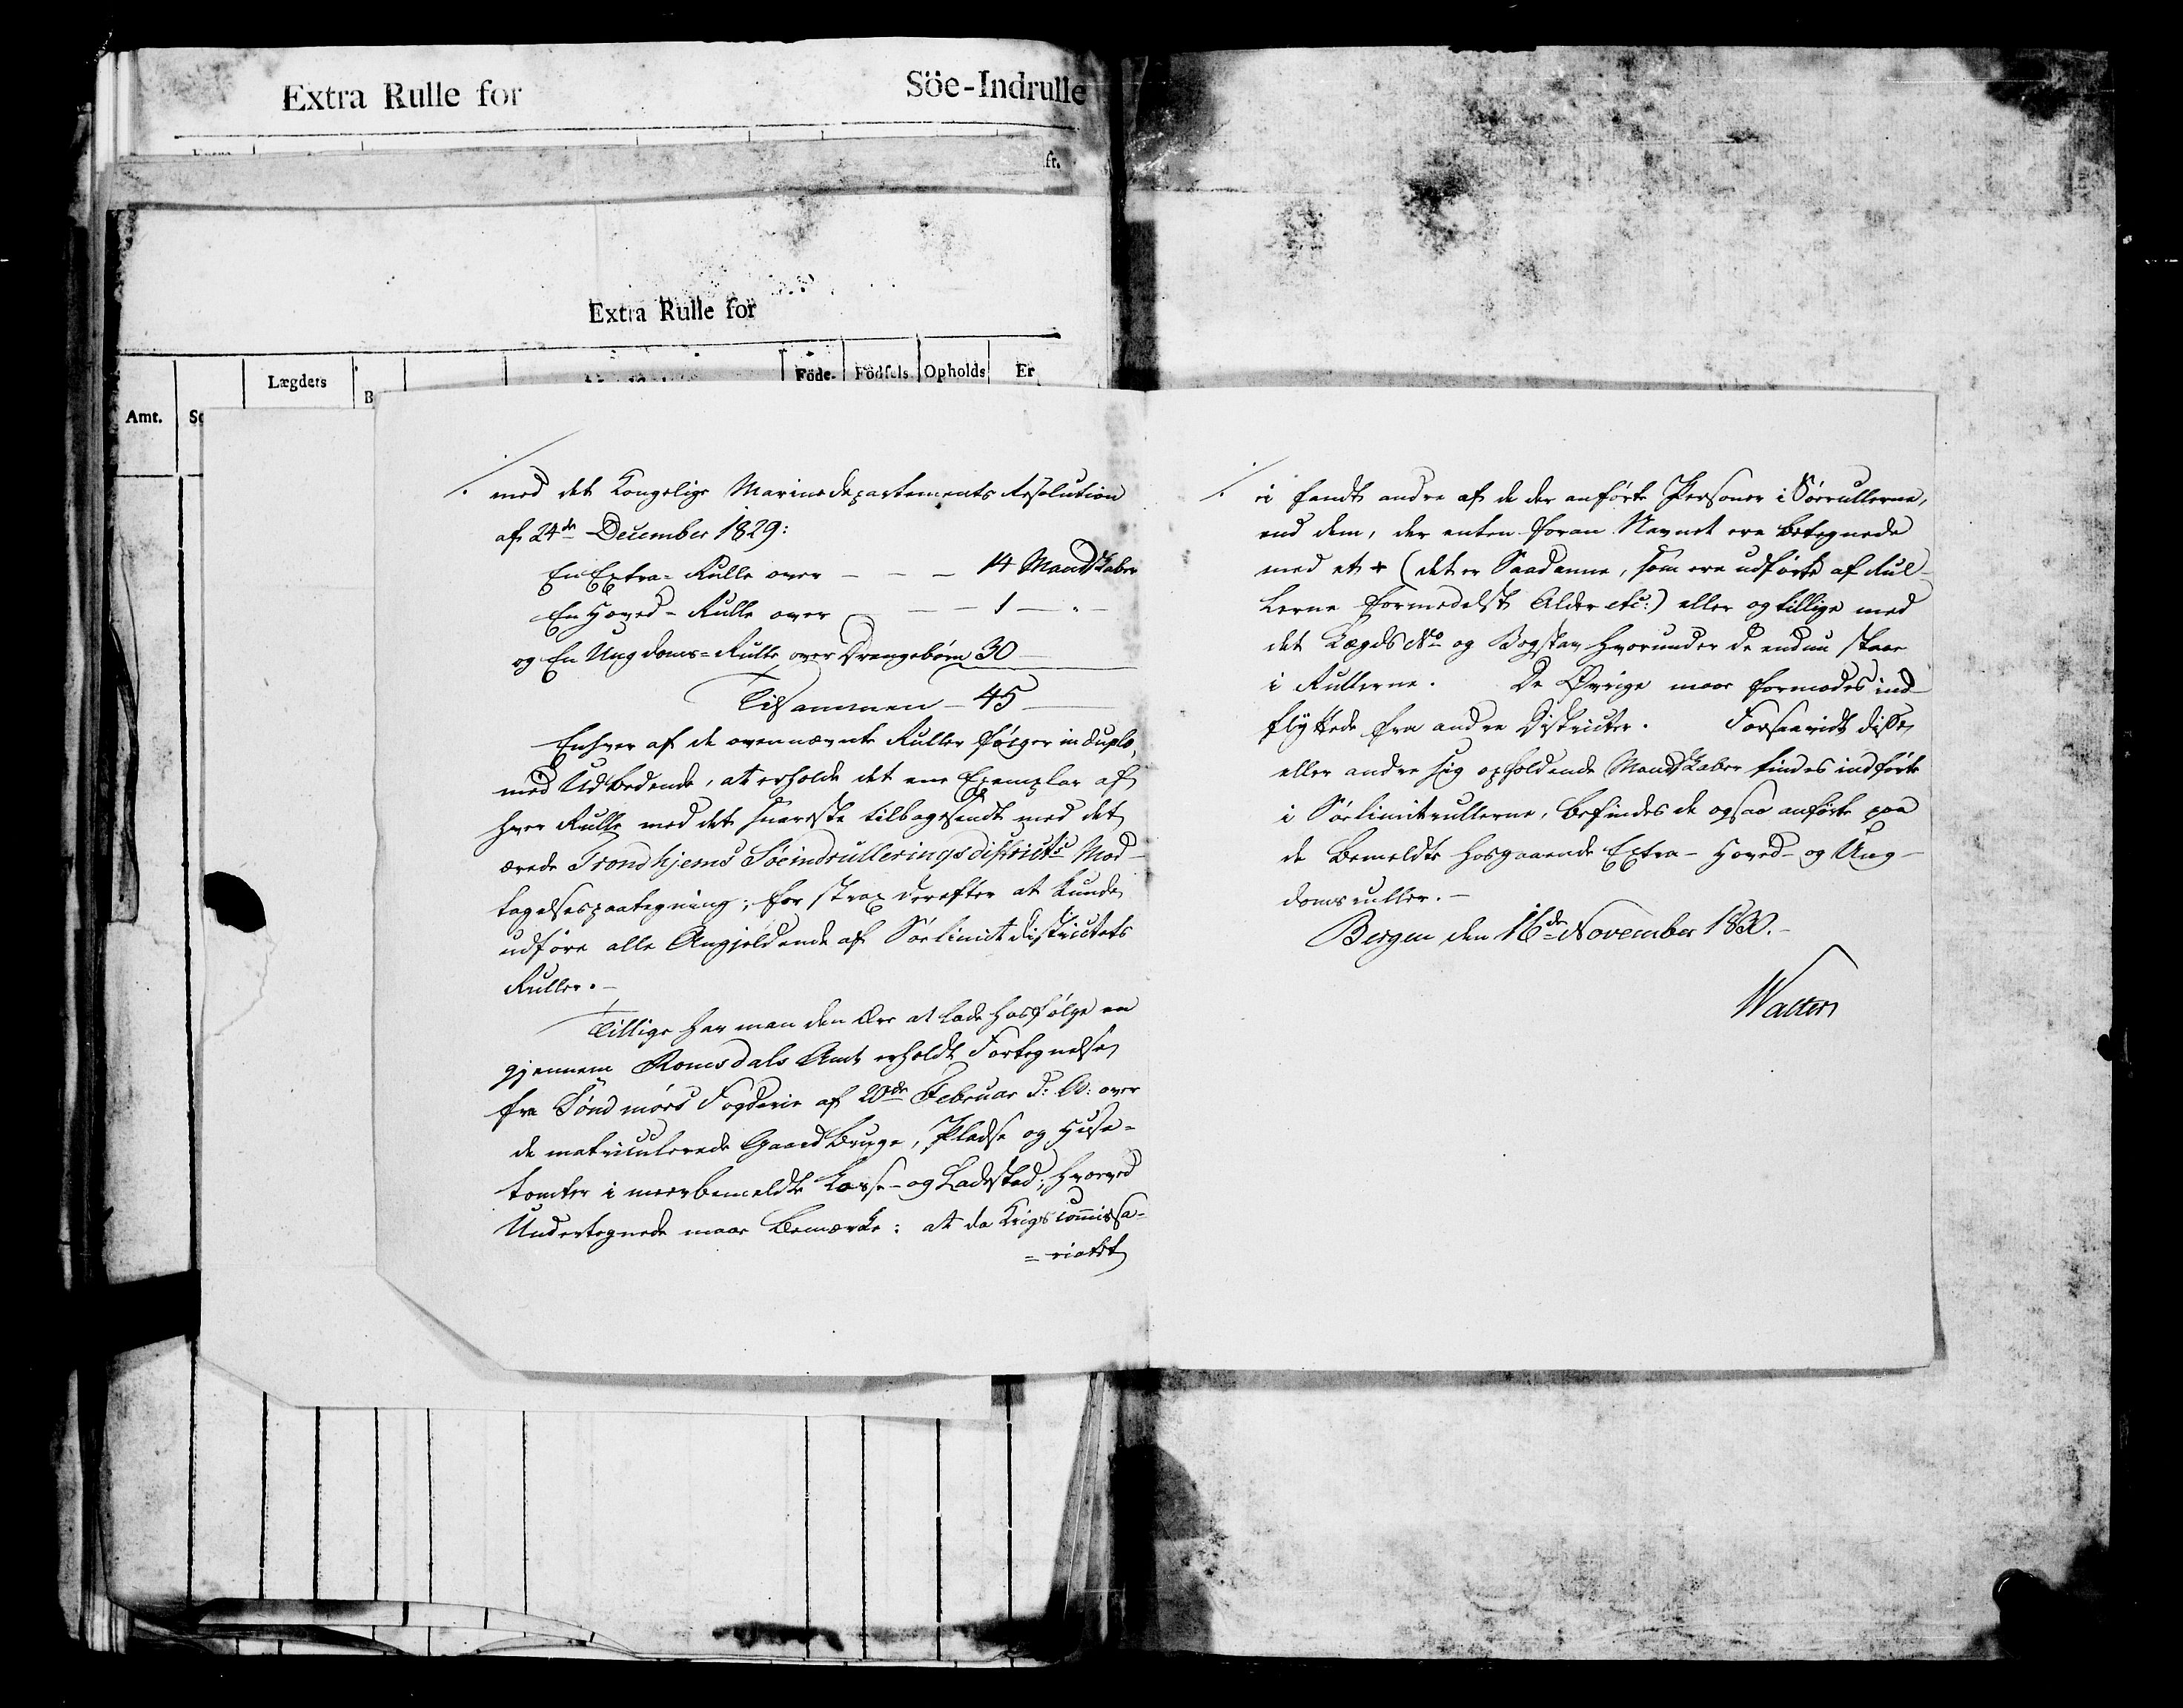 Extra Rulle for
Söe-Indrulle
fr.
Extra Rulle for
Lægdets
Föde-
Födsels
Opholds
Er
Amt.
./. med det Kongelige Marinedepartements Resolution
af 24de December 1829:
En Extra-Rulle over — — — 14 Mandskaber
En Hoved-Rulle over — — — 1 — " —
og En Ungdoms-Rulle over Drengebørn 30 —
Tilsammen — 45 —
Enhver af de ovennævnte Ruller følger in duplo,
med Udbedende, at erholde det ene Exemplar af
hver Rulle med det snareste tilbagesendt med det
ærede Trondhjems Söeindrulleringsdistricts Mod-
tagelsespaategning; for strax derefter at kunde
udføre alle Angjeldende af Söelimitdistrictets
Ruller.—
Tillige har man den Ære at lade hosfølge en
gjennem Romsdals Amt erholdt Fortegnelse
fra Söndmörs Fogderie af 20de Februar d: A: over
de matriculerede Gaardbruge, Pladse og Huse-
tomter i meerbemeldte Losse- og Ladested; hvorved
Undertegnede maae bemærke: at da Krigscommissa-
=riatet
./. ei fandt andre af de der anførte Personer i Söerullerne,
end dem, der enten foran Navnet ere betegnede
med et + (det er Saadanne, som ere udførte af Rul-
lerne formedelst Alder etc:) eller og tillige med
det Lægds No og Bogstav hvorunder de endnu staae
i Rullerne. De Øvrige maae formodes ind-
flyttede fra andre Districter. Forsaavidt disse
eller andre sig opholdende Mandskaber findes indførte
i Söelimitrullerne, befindes de ogsaa anførte paa
de bemeldte hosgaaende Extra- Hoved- og Ung-
domsruller.—
Bergen den 16de November 1830.—